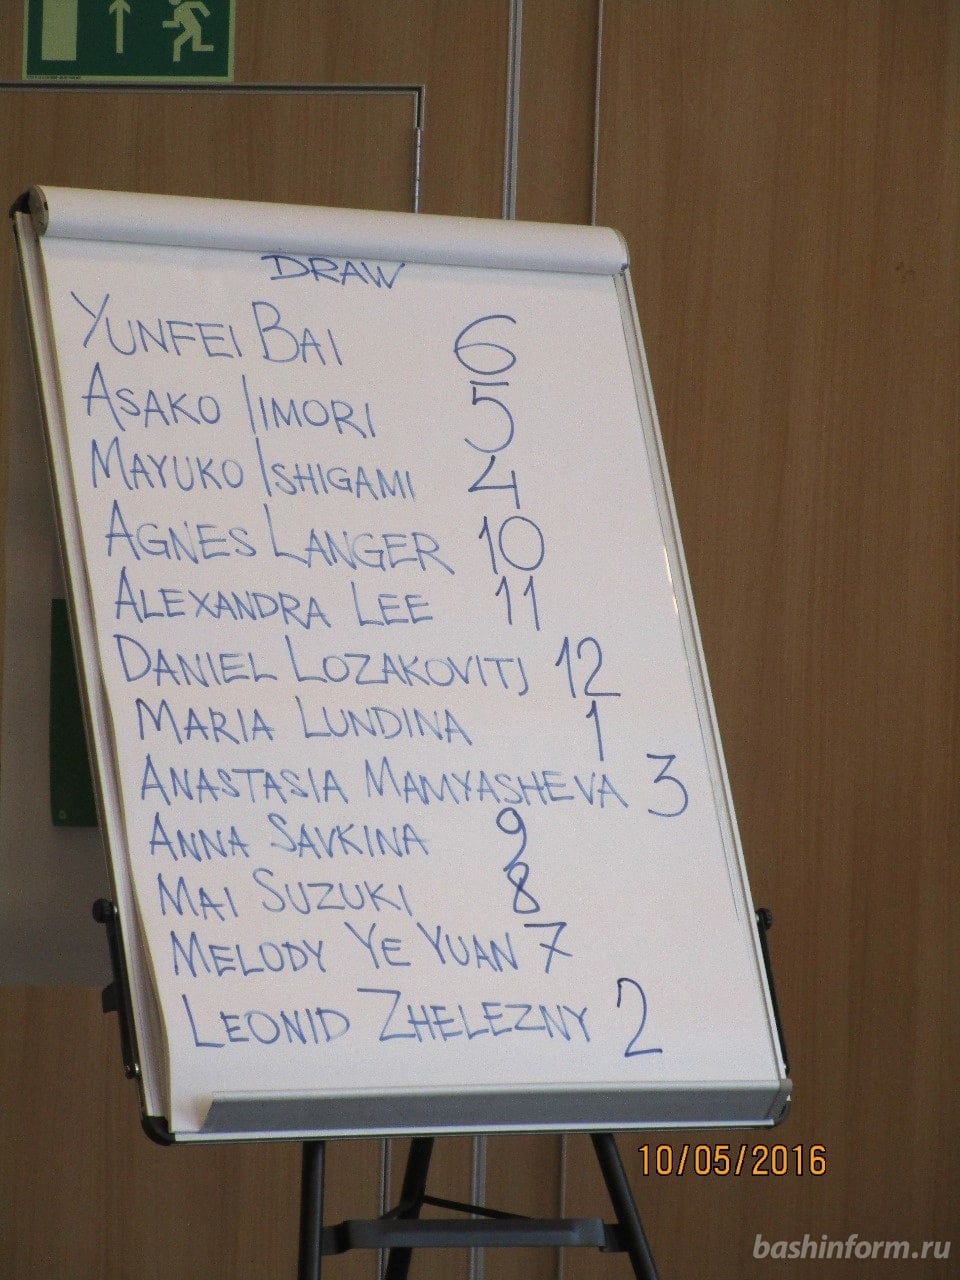 DRAW
YUNFEI BAI 6
ASAKO IIMORI 5
MAYUKO ISHIGAMI 4
AGNES LANGER 10
ALEXANDRA LEE 11
DANIEL LOZAKOVITJ 12
MARIA LUNDINA 1
ANASTASIA MAMYASHEVA 3
ANNA SAVKINA 9
MAI SUZUKI 8
MELODY YE YUAN 7
LEONID ZHELEZNY 2
10/05/2016
bashinform.ru